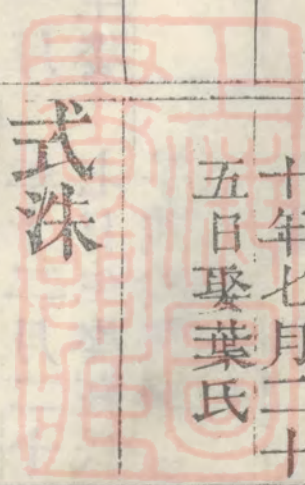 十年七月二十
五日娶葉氏
式洙